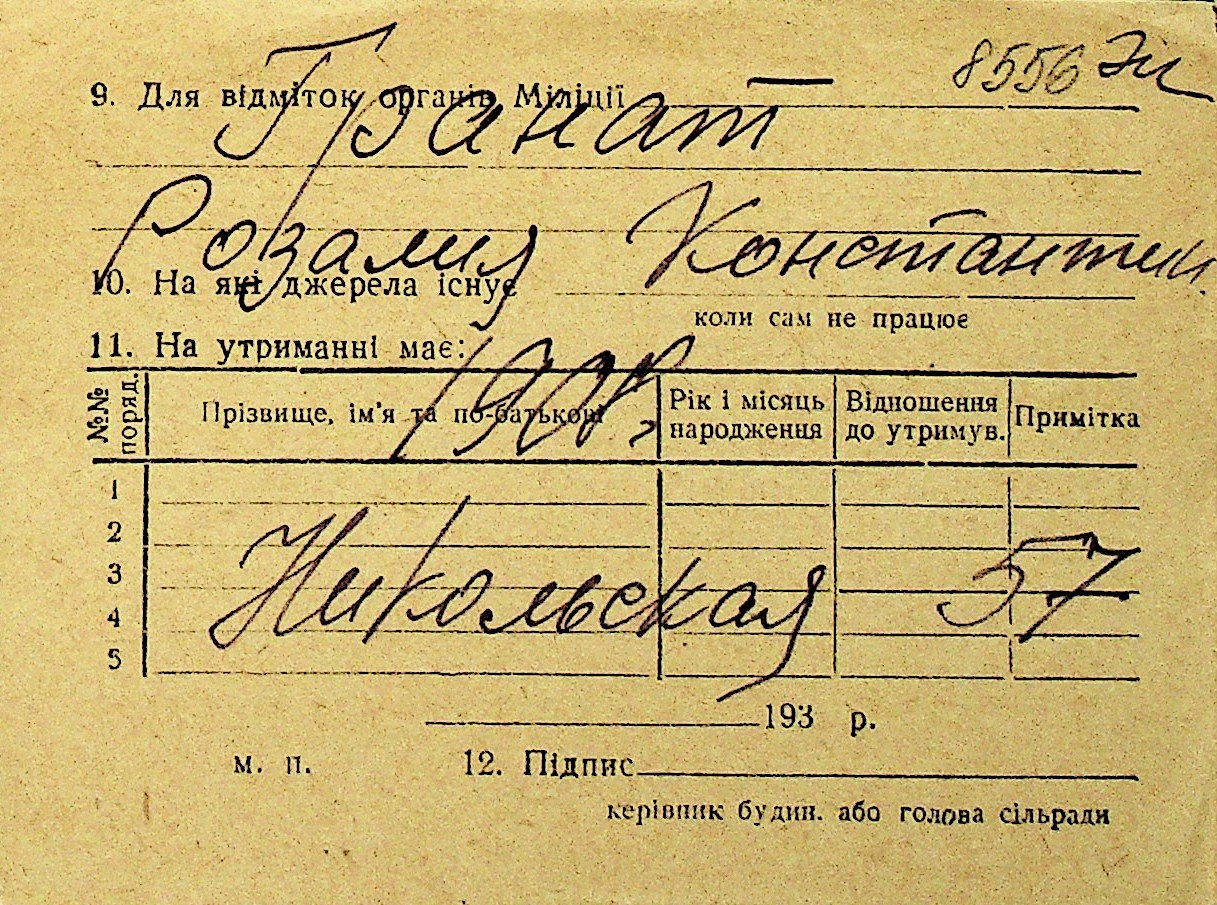 8556 Эк
9. Для відміток органів Міліції
Гранат
Розалия Константин.
10. На які джерела існує
коли сам не працює
11. На утриманні має:
1908 г.
№№ поряд. Прізвище, ім'я та по-батькові Рік і місяць народження Відношення до утримув. Примітка
1
2
3
4
5
Никольская 57
193 р.
м. п. 12. Підпис
керівник будин. або голова сільради